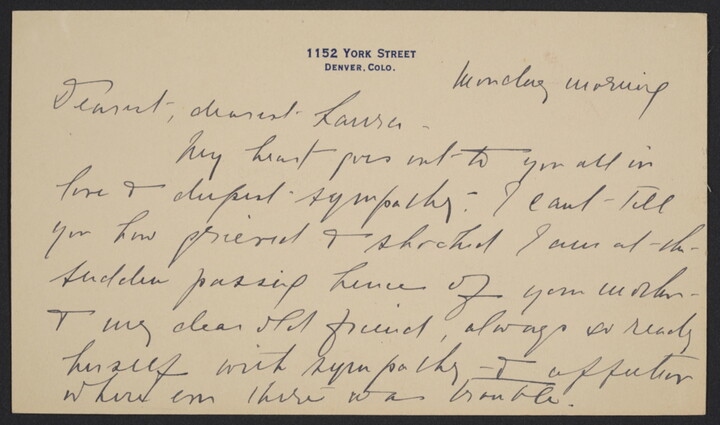 1152 York Street
Denver, Colo.
Monday morning
Dearest, dearest Laura -
My heart goes out to you all in
love & deepest sympathy - I cant tell
you how grieved & shocked I am at the
sudden passing hence of your mother -
& my dear old friend, always so ready
herself with sympathy & affection
where ever there was trouble.